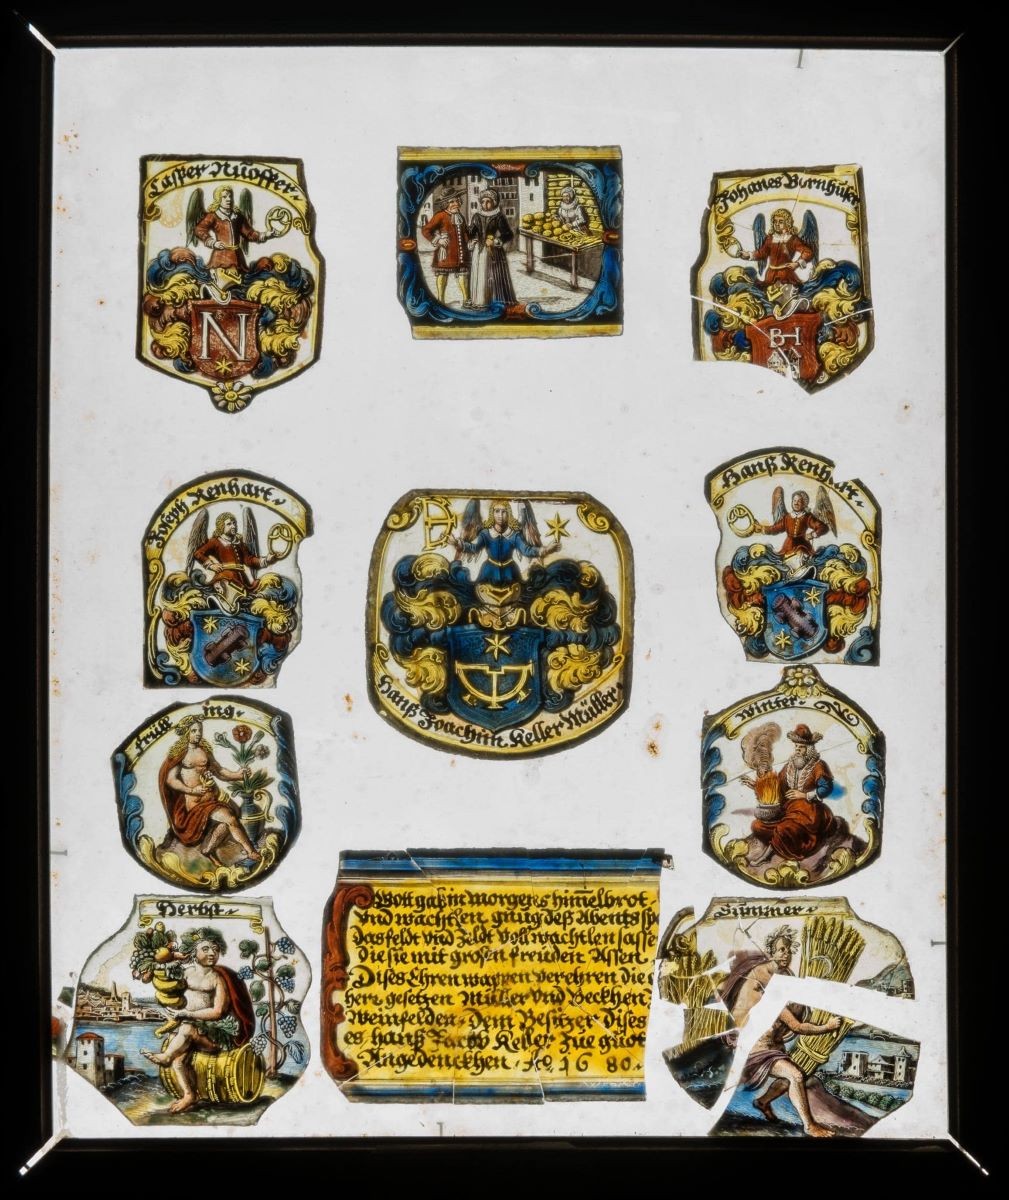 Casper Nüoffer
Johanes Bornhuser
N
BH
Joseph Renhart
Hanß Renhart
Hanß Joachim Keller Müller
früling
Winter
Herbst
Sümmer
Gott gab in morgens himmelbrot
vnd wachtlen gnug deß Abents
das feldt vnd Zeldt voll wachtlen sasse
Die sie mit großen freuden Assen
Dises Ehren wappen verehren die
herz gesetzen Müller vnd Beckhen
Weinfelden Dem Besitzer dises
es hanß Jacob Keller Zue guot
Angedenckhen Ao 1680